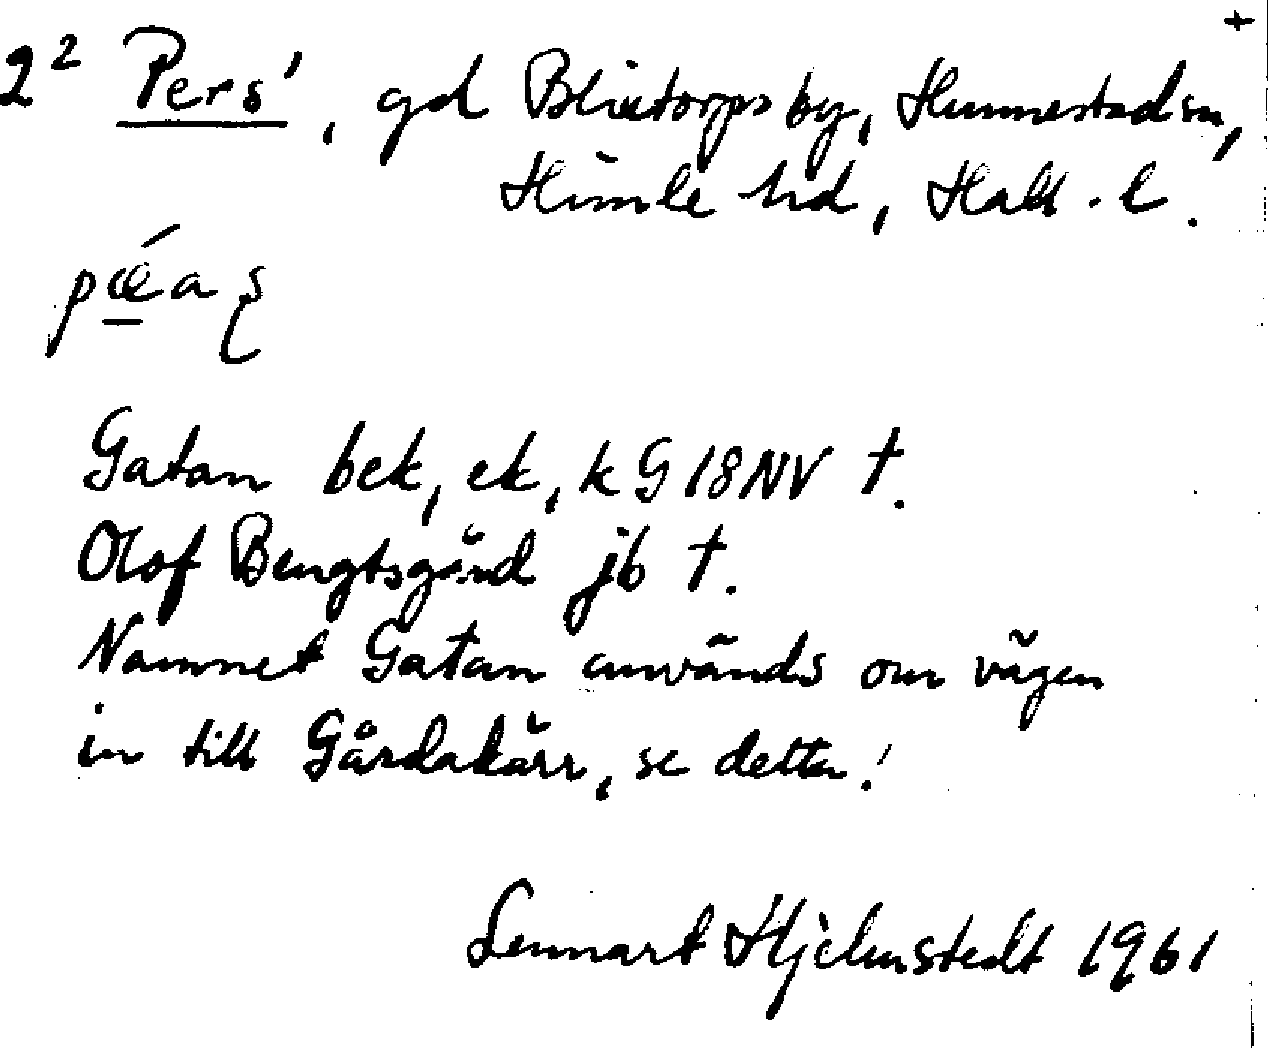 +
2² Pers', gd Blixtorps by, Hunnestad sn,
Himle hd, Hall. l.
pǽas
Gatan bek, ek, k G 18 NV †.
Olof Bengtsgård jb †.
Namnet Gatan används om vägen
in till Gårdakärr, se detta!
Lennart Hjelmstedt 1961